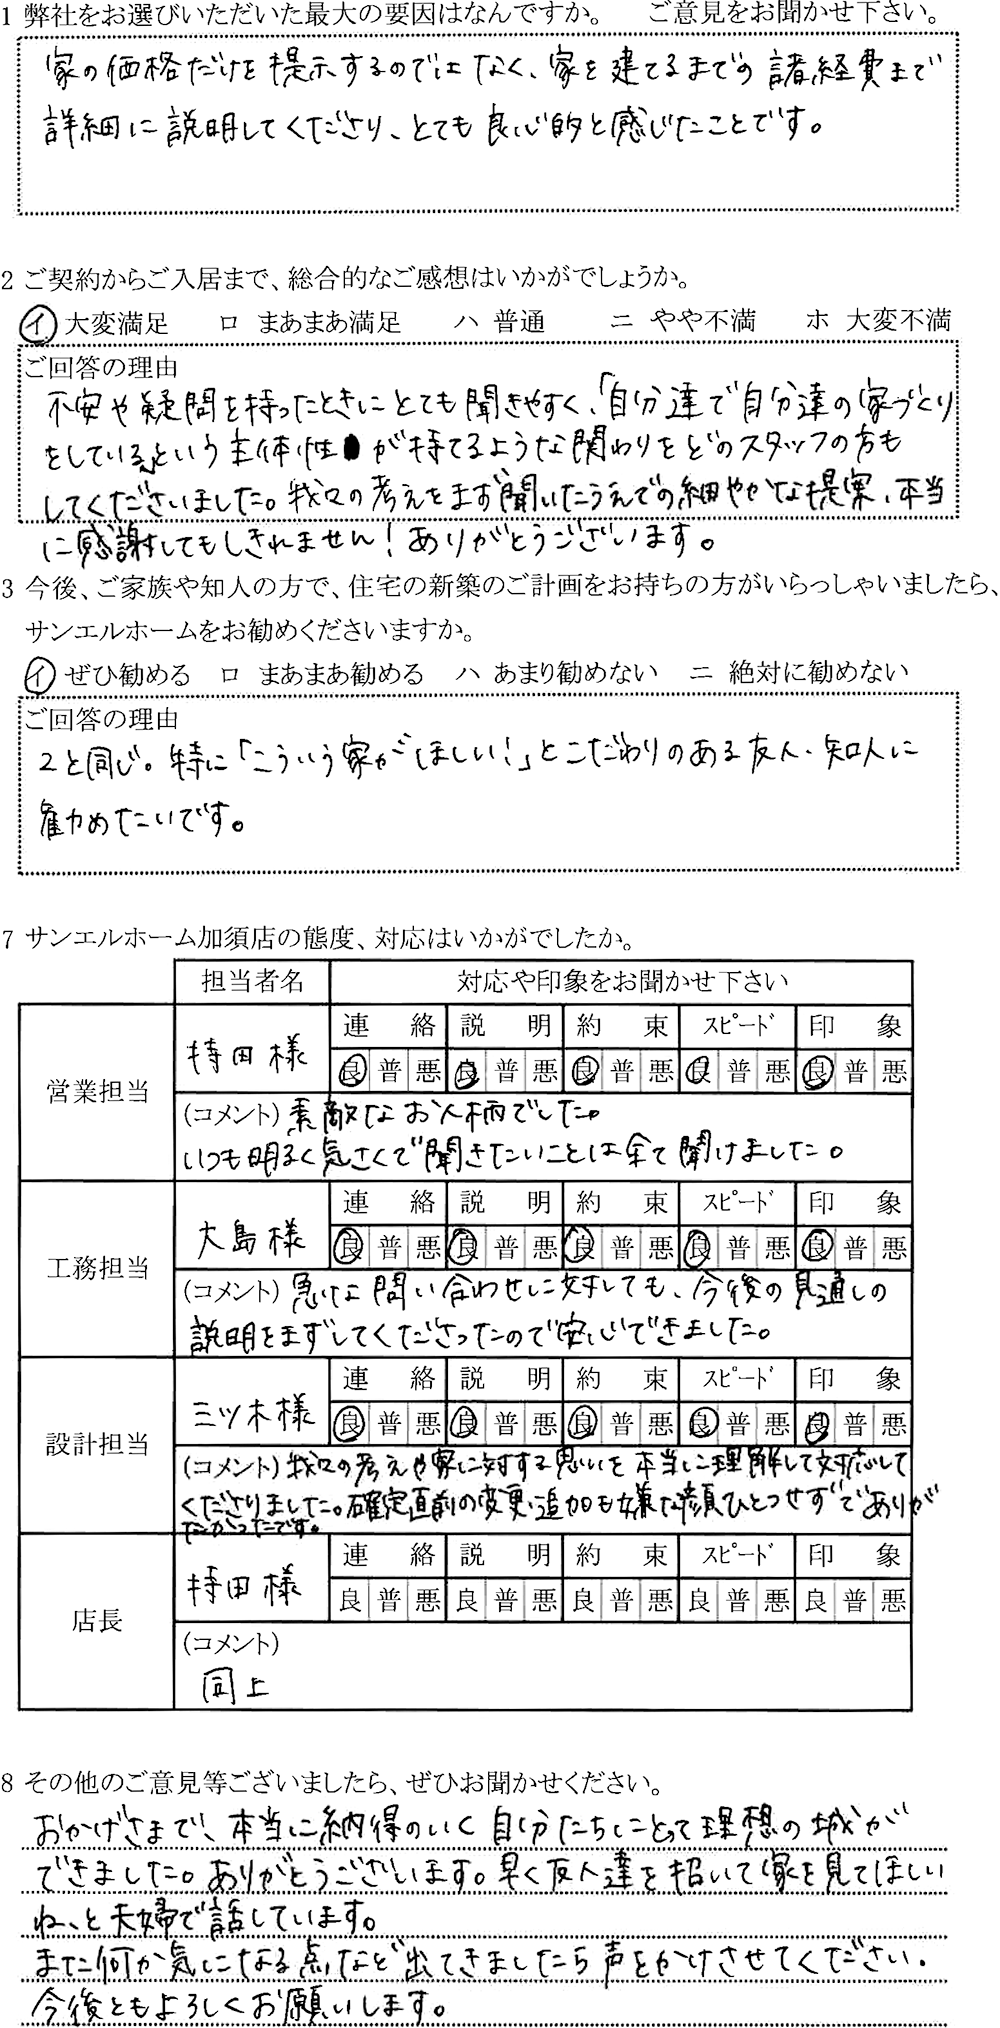 1 弊社をお選びいただいた最大の要因はなんですか。　ご意見をお聞かせ下さい。
家の価格だけを提示するのではなく、家を建てるまでの諸経費まで
詳細に説明してくださり、とても良心的と感じたことです。
2 ご契約からご入居まで、総合的なご感想はいかがでしょうか。
イ 大変満足　ロ まあまあ満足　ハ 普通　ニ やや不満　ホ 大変不満
ご回答の理由
不安や疑問を持ったときにとても聞きやすく、「自分達で自分達の家づくり
をしている」という主体性が持てるような関わりをどのスタッフの方も
してくださいました。我々の考えをまず聞いたうえでの細やかな提案、本当
に感謝してもしきれません！ありがとうございます。
3 今後、ご家族や知人の方で、住宅の新築のご計画をお持ちの方がいらっしゃいましたら、
サンエルホームをお勧めくださいますか。
イ ぜひ勧める　ロ まあまあ勧める　ハ あまり勧めない　ニ 絶対に勧めない
ご回答の理由
2と同じ。特に「こういう家がほしい！」とこだわりのある友人・知人に
勧めたいです。
7 サンエルホーム加須店の態度、対応はいかがでしたか。
担当者名　対応や印象をお聞かせ下さい
営業担当　持田様　連絡　説明　約束　スピード　印象
良 普 悪 良 普 悪 良 普 悪 良 普 悪 良 普 悪
(コメント) 素敵なお人柄でした。
いつも明るく気さくで聞きたいことは全て聞けました。
工務担当　大島様　連絡　説明　約束　スピード　印象
良 普 悪 良 普 悪 良 普 悪 良 普 悪 良 普 悪
(コメント) 急な問い合わせに対しても、今後の見通しの
説明をまずしてくださったので安心できました。
設計担当　三ツ木様　連絡　説明　約束　スピード　印象
良 普 悪 良 普 悪 良 普 悪 良 普 悪 良 普 悪
(コメント) 我々の考えや家に対する思いを本当に理解して対応して
くださりました。確定直前の変更・追加も嫌な顔ひとつせずでありが
たかったです。
店長　持田様　連絡　説明　約束　スピード　印象
良 普 悪 良 普 悪 良 普 悪 良 普 悪 良 普 悪
(コメント)
同上
8 その他のご意見等ございましたら、ぜひお聞かせください。
おかげさまで、本当に納得のいく自分たちにとって理想の城が
できました。ありがとうございます。早く友人達を招いて家を見てほしい
ね、と夫婦で話しています。
また何か気になる点など出てきましたら声をかけさせてください。
今後ともよろしくお願いします。